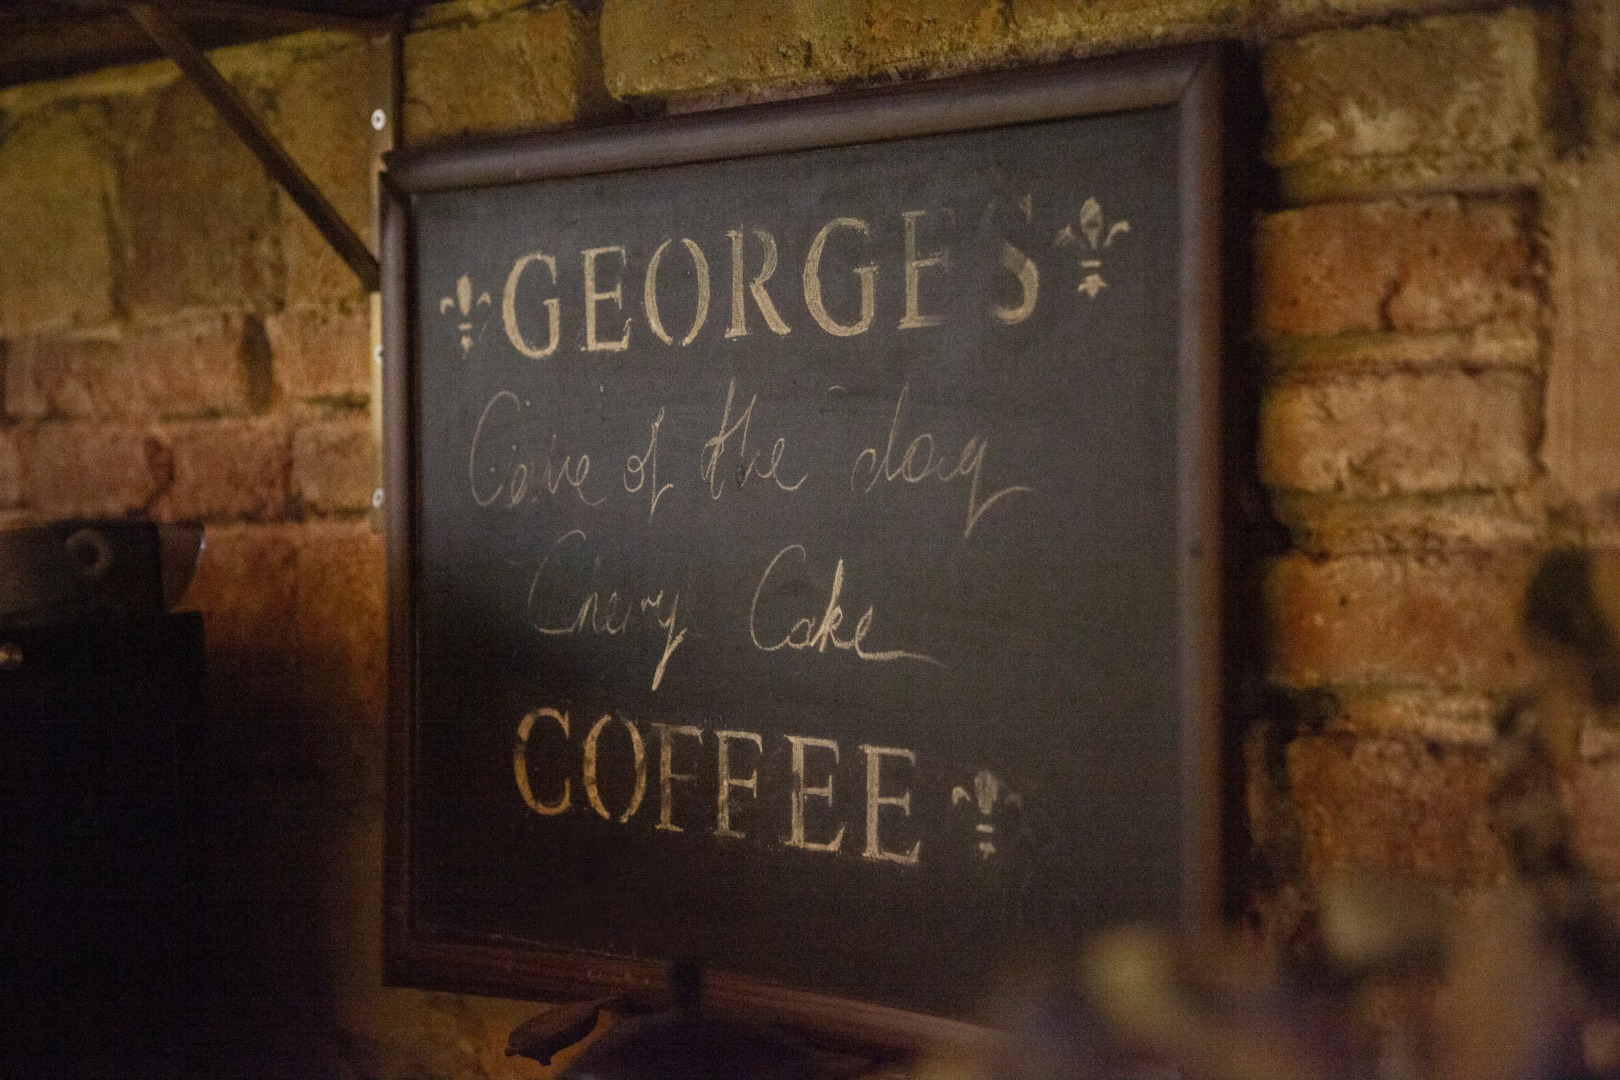 GEORGES
Cake of the day
Cherry Cake
COFFEE